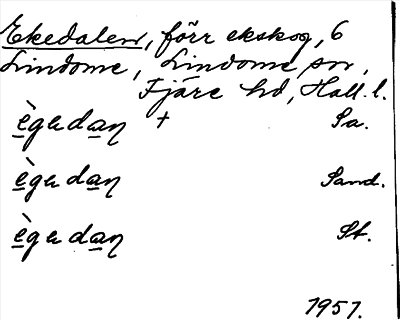 Ekedalen, förr ekskog, 6
Lindome, Lindome sn,
Fjäre hd, Hall. l.
ègədan + Sa.
ègədan Sand.
ègədan St.
1951.